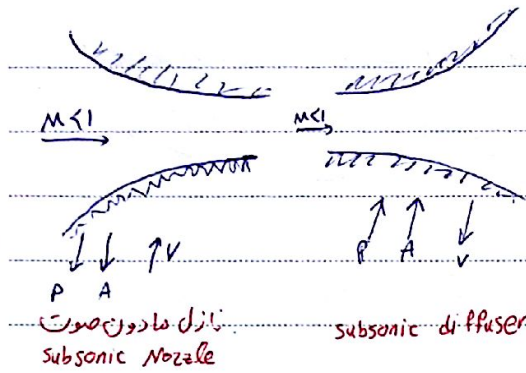 M<1
M<1
P A V
P A V
نازل مادون صوت
subsonic Nozzle
subsonic diffuser